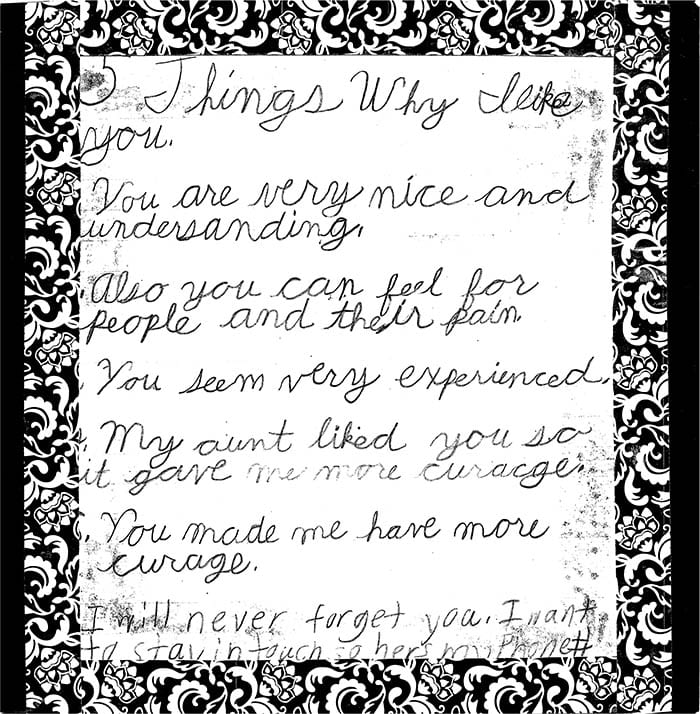 5 Things Why I like
you.
You are very nice and
undersanding.
Also you can feel for
people and their pain.
You seem very experienced.
My aunt liked you so
it gave me more curacge.
You made me have more
curage.
I will never forget you. I want
to stay in touch so hers my Phone#